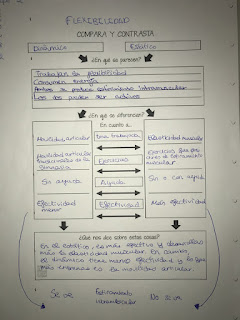 FLEXIBILIDAD
COMPARA Y CONTRASTA
Dinámico Estático
¿En qué se parecen?
Trabajan la flexibilidad
Consumo energía
Ambos se produce estiramiento intramuscular
Los dos pueden ser activos
¿En qué se diferencian?
En cuanto a:
Movilidad articular Zona trabajada Elasticidad muscular
Movilidad articular Ejercicios Ejercicios
Sin ayuda Ayuda Sin o con ayuda
Efectividad menor Efectividad Más efectividad
¿Qué nos dice sobre estas cosas?
En el estático, es más efectivo y
más la elasticidad muscular. En cambio,
el dinámico tiene menos efectividad y lo que
más es la movilidad articular.
Se ve Estiramiento No se ve
intramuscular